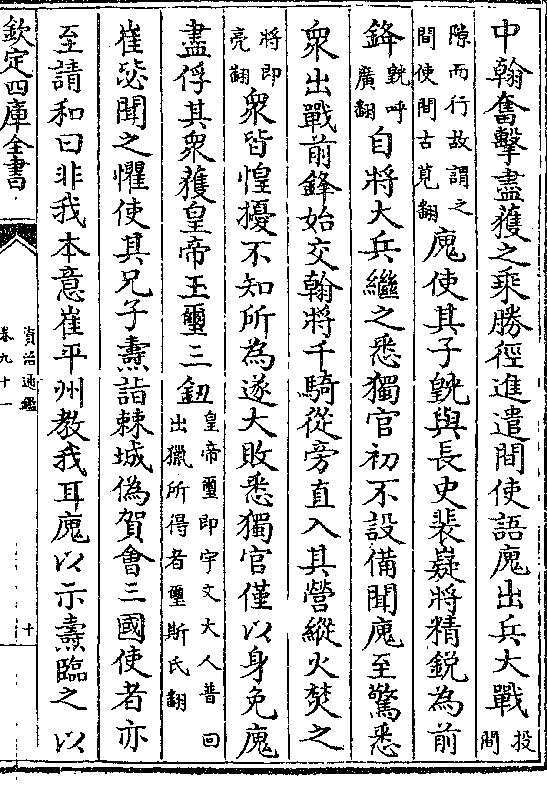 中翰奮擊盡獲之乘勝徑進遣間使語廆出兵大戰投間
隙而行故謂之間使間古莧翻廆使其子皝與長史裴嶷將精鋭為前
鋒皝呼廣翻自將大兵繼之悉獨官初不設備聞廆至驚悉
衆出戰前鋒始交翰將千騎從旁直入其營縱火焚之
將即亮翻衆皆惶擾不知所為遂大敗悉獨官僅以身免廆
盡俘其衆獲皇帝玉璽三鈕皇帝璽即宇文大人普回出獵所得者璽斯氏翻
崔毖聞之懼使其兄子燾詣棘城偽賀會三國使者亦
至請和曰非我本意崔平州教我耳廆以示燾臨之以
欽定四庫全書
資治通鑑
卷九十一
十